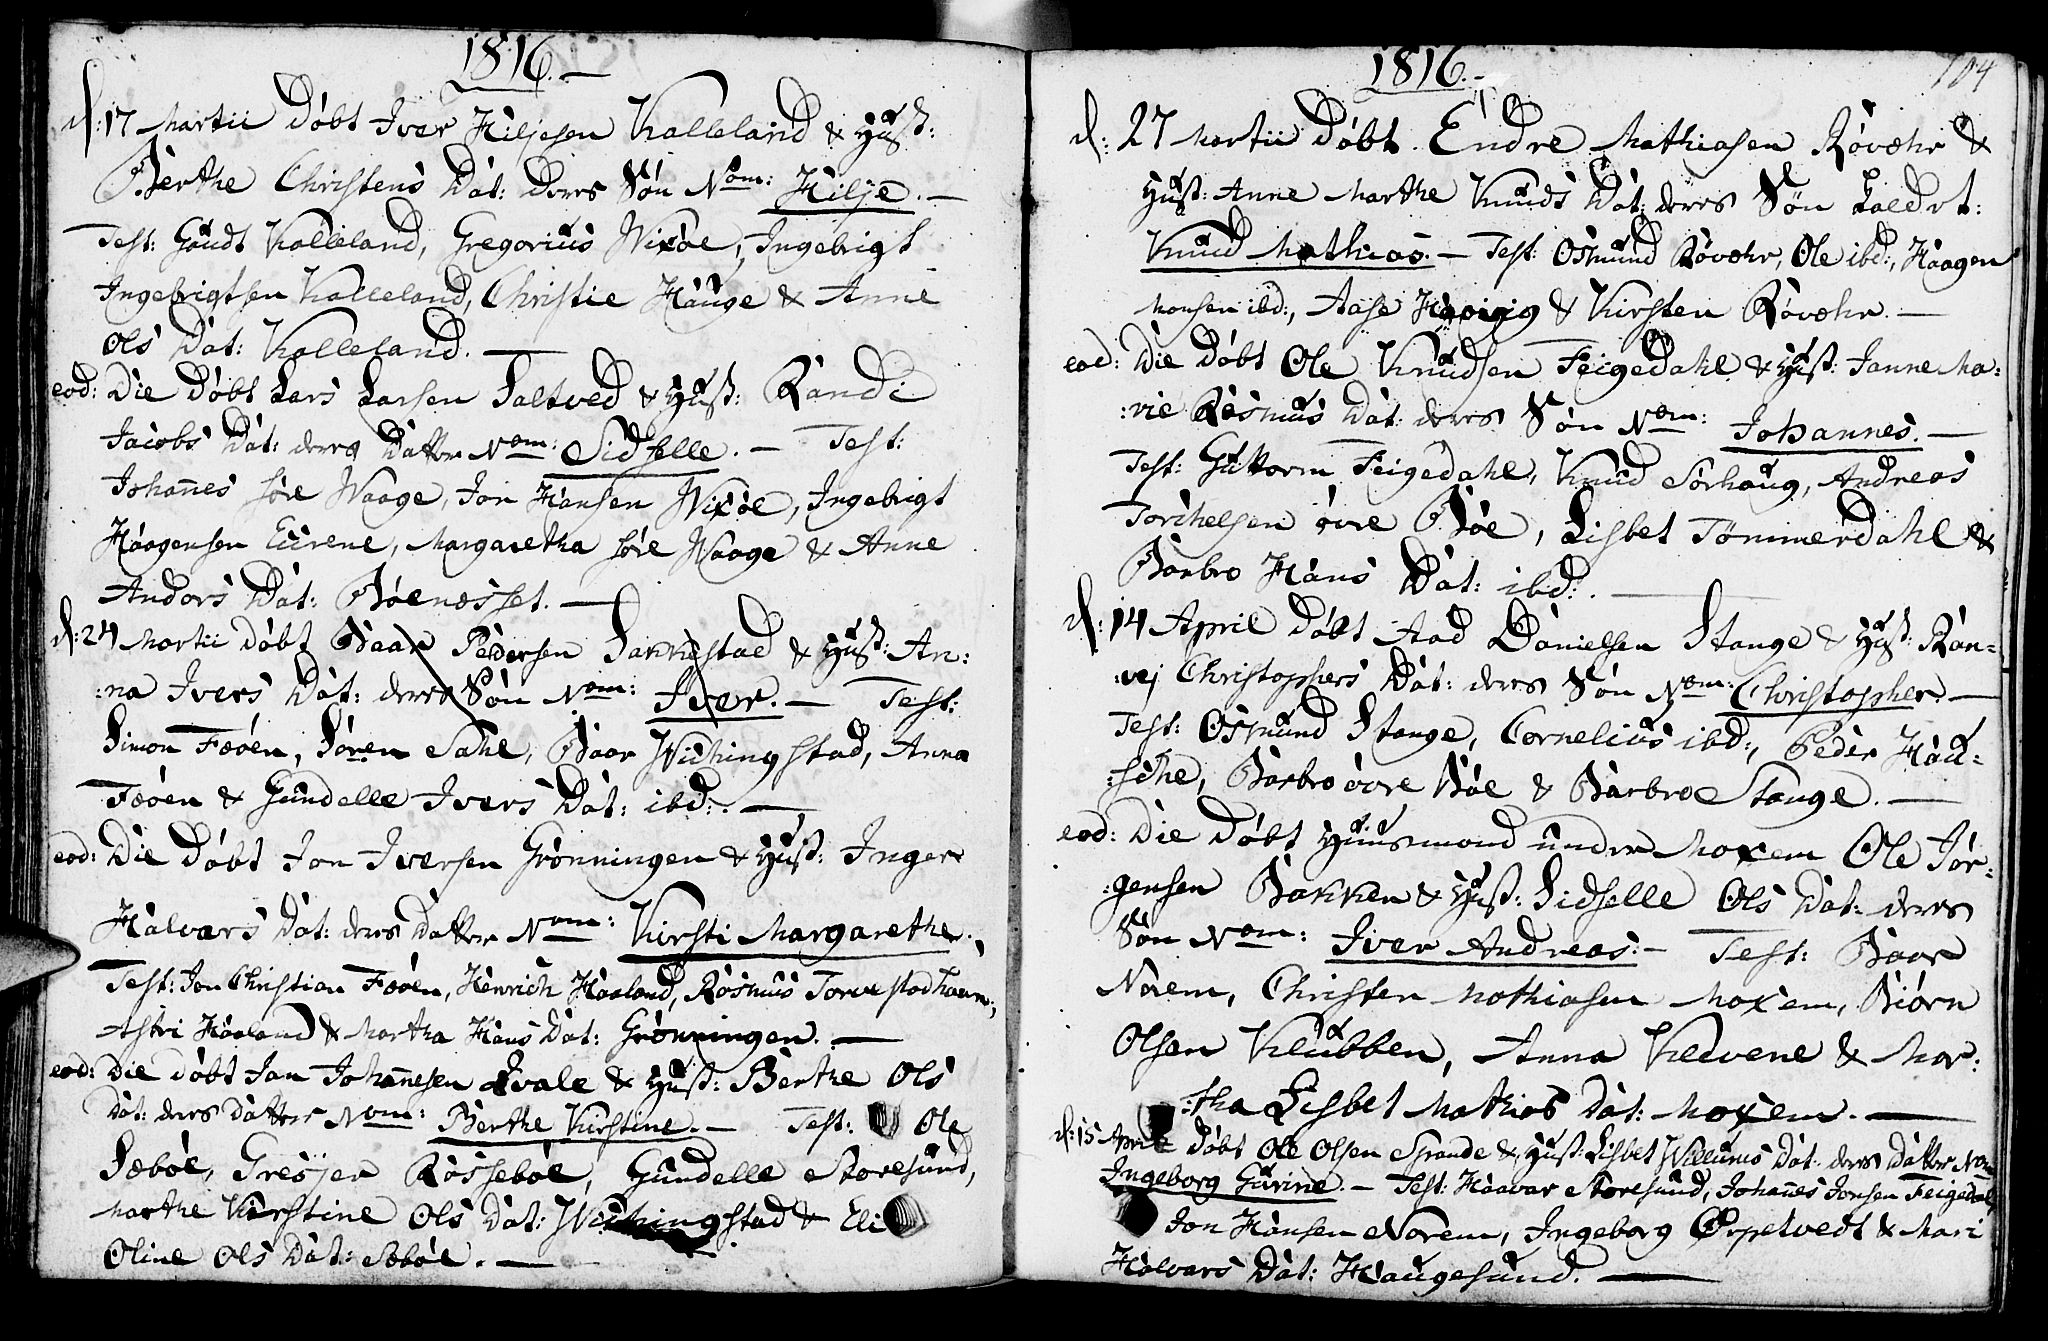 1816.—
d: 17 Martii Døbt Iver Hiljesen Kalleland & Hust:
Berthe Christens Dat: deres Søn Nom: Hilje.—
Test: Gaudt Kalleland, Gregorius Wixøe, Ingebrigt
Ingebrigtsen Kalleland, Christie Hauge & Anne
Ols Dat: Kalleland.—
eod: Die Døbt Lars Larsen Saltved & Hust: Randi
Jacobs Dat: deres Datter Nom: Sidselle.— Test:
Johannes søre Waage, Jon Hansen Wixøe, Ingebrigt
Haagensen Eivene, Margaretha søre Waage & Anne
Andors Dat: Bøenæsset.—
d: 24 Martii Døbt Baar Pedersen Sakkestad & Hust: An:
:na Ivers Dat: deres Søn Nom: Iver.— Test:
Simon Fæøen, Søren Sahl, Baar Widhingstad, Anna
Fæøen & Gundelle Ivers Dat: ibd:.—
eod: Die Døbt Jon Iversen Grønningen & Hust: Inger
Halvars Dat: deres Datter Nom: Kirsti Margarethe.
Test: Jon Christian Fæøen, Henrich Haaland, Rasmus Torvestadhavn,
Astri Haaland & Martha Hans Dat: Grønningen.—
eod: Die Døbt Jan Johannesen Qvale & Hust: Berthe Ols
Dat: deres Datter Nom: Berthe Kirstine.— Test: Ole
Sæbøe, Gresjer Røssebøe, Gundelle Storesund,
Marthe Kirstine Ols Dat: Widhingstad & Eli
Oline Ols Dat: Sæbøe.—
1816.—
104
d: 27 Martii Døbt Endre Mathiasen Røvæhr &
Hust: Anne Marthe Knuds Dat: deres Søn kaldet:
Knud Mathias.— Test: Osmund Røvæhr, Ole ibd:, Haagen
Monsen ibd:, Aase & Kirsten Røvæhr.—
eod: Die Døbt Ole Knudsen Feigedahl & Hust: Janne Ma:
:rie Rasmus Dat: deres Søn Nom: Johannes.—
Test: Guttorm Feigedahl, Knud Sørhaug, Andreas
Torchelsen øvre Bøe, Lisbet Tømmerdahl &
Barbro Hans Dat: ibd:.—
d: 14 April Døbt Aad Danielsen Stange & Hust: Ran-
:vej Christophers Dat: deres Søn Nom: Christopher.—
Test: Osmund Stange, Cornelius ibd:, Peder Hau-
:sche, Barbro øvre Bøe & Barbroe Stange.—
eod: Die Døbt Huusmand under Moxem Ole Jør-
:gensen Bakken & Hust: Sidselle Ols Dat: deres
Søn Nom: Iver Andreas:— Test: Baar
Norem, Christen Mathiasen Moxem, Biørn
Olsen Klubben, Anna Kedvene & Mar:
:tha Lisbet Mathias Dat: Moxem.—
d: 15 April Døbt Ole Olsen Spande & Hust: Lisbet Willums Dat: deres Datter Nom
Ingeborg Gurine.— Test: Haavar Storesund, Johannes Jonsen Feigedal,
Jon Hansen Norem, Ingeborg Oppetvedt & Mari
Halvars Dat: Haugesund.—